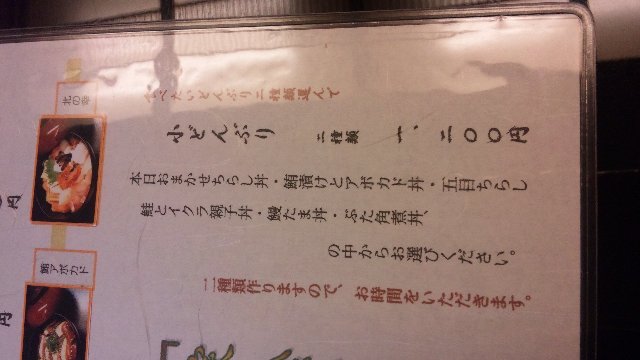 食べたいどんぶり二種類選んで
小どんぶり 二種類 一、二〇〇円
本日おまかせちらし丼・鮪漬けとアボカド丼・五目ちらし
鮭とイクラ親子丼・鰻たま丼・ぶた角煮丼、
の中からお選びください。
二種類作りますので、お時間をいただきます。
北の幸
円
鮪アボカド
円